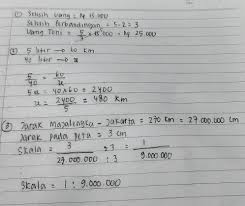 ① Selisih uang = Rp 15.000
Selisih Perbandingan = 5-2 = 3
Uang Toni = 5/3 x 15.000 = Rp 25.000
② 5 liter → 60 km
40 liter → x
5/40 = 60/x
5x = 40 x 60 = 2400
x = 2400/5 = 480 km
③ Jarak Majalengka - Jakarta = 270 km = 27.000.000 cm
Jarak pada peta = 3 cm
Skala = 3 : 3 = 1
27.000.000 : 3 9.000.000
Skala = 1 : 9.000.000